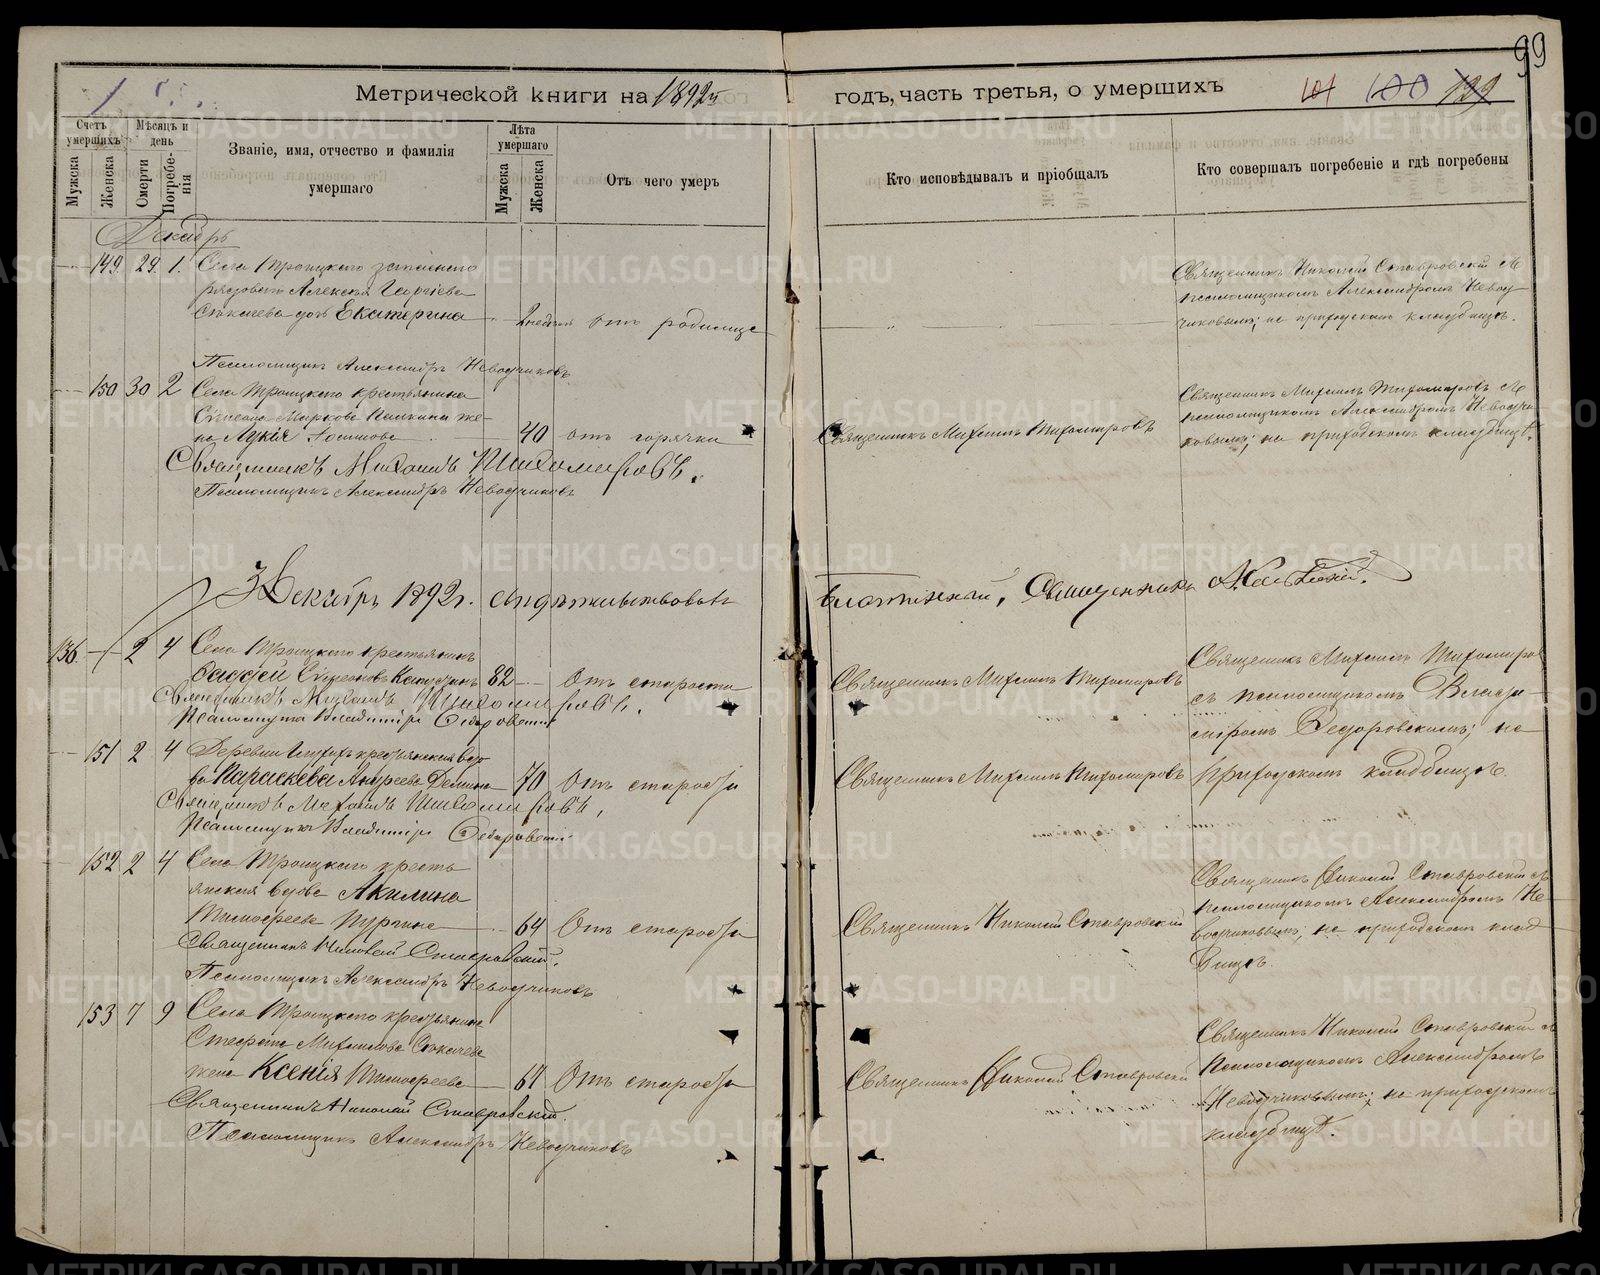 99
Метрической книги на 1892й годъ, часть третья, о умершихъ
101 100 129
Счетъ умершихъ
Мужска
Женска
Мѣсяцъ и день
Смерти
Погребенія
Званіе, имя, отчество и фамилія умершаго
Лѣта умершаго
Мужска
Женска
Отъ чего умеръ
Кто исповѣдывалъ и пріобщалъ
Кто совершалъ погребеніе и гдѣ погребены
Декабрь
149 29 1. Села Троицкаго запаснаго
рядоваго Алексѣя Георгіева
дочь Екатерина 2 недѣли отъ родимца
Священникъ Николай Ставровскій съ
псаломщикомъ Александромъ Невод-
чиковымъ; на приходскомъ кладбищѣ.
Псаломщикъ Александръ Неводчиковъ
150 30 2 Села Троицкаго крестьянина
Маркова же-
на Лукія 40 отъ горячки
Священникъ Михаилъ Тихомировъ
Священникъ Михаилъ Тихомировъ съ
псаломщикомъ Александромъ Неводчи-
ковымъ; на приходскомъ кладбищѣ.
Священникъ Михаилъ Тихомировъ.
Псаломщикъ Александръ Неводчиковъ
Декабрь 1892 г. свидѣтельствовалъ
благочинный, Священникъ
136 2 4 Села Троицкаго крестьянинъ
Фаддей 82 Отъ старости
Священникъ Михаилъ Тихомировъ
Священникъ Михаилъ Тихомиров
съ псаломщикомъ Влади-
міромъ Ѳедоровскимъ; на
приходскомъ кладбищѣ.
Священникъ Михаилъ Тихомировъ.
Псаломщикъ Владиміръ Ѳедоровскій
151 2 4 Деревни крестьянская вдо-
ва Параскева Андреева Демина 70 Отъ старости
Священникъ Михаилъ Тихомировъ
Священникъ Михаилъ Тихомировъ,
Псаломщикъ Владиміръ Ѳедоровскій
152 2 4 Села Троицкаго кресть
янская вдова Акилина
Тимофеева 64 Отъ старости
Священникъ Николай Ставровскій
Священникъ Николай Ставровскій съ
псаломщикомъ Александромъ Не-
водчиковымъ; на приходскомъ клад
бищѣ.
Священникъ Николай Ставровскій.
Псаломщикъ Александръ Неводчиковъ
153 7 9 Села Троицкаго крестьянина
Стефана Михаилова
жена Ксенія Тимофеева 67 Отъ старости
Священникъ Николай Ставровскій
Священникъ Николай Ставровскій съ
Псаломщикомъ Александромъ
Неводчиковымъ; на приходскомъ
кладбищѣ.
Священникъ Николай Ставровскій.
Псаломщикъ Александръ Неводчиковъ
METRIKI.GASO-URAL.RU